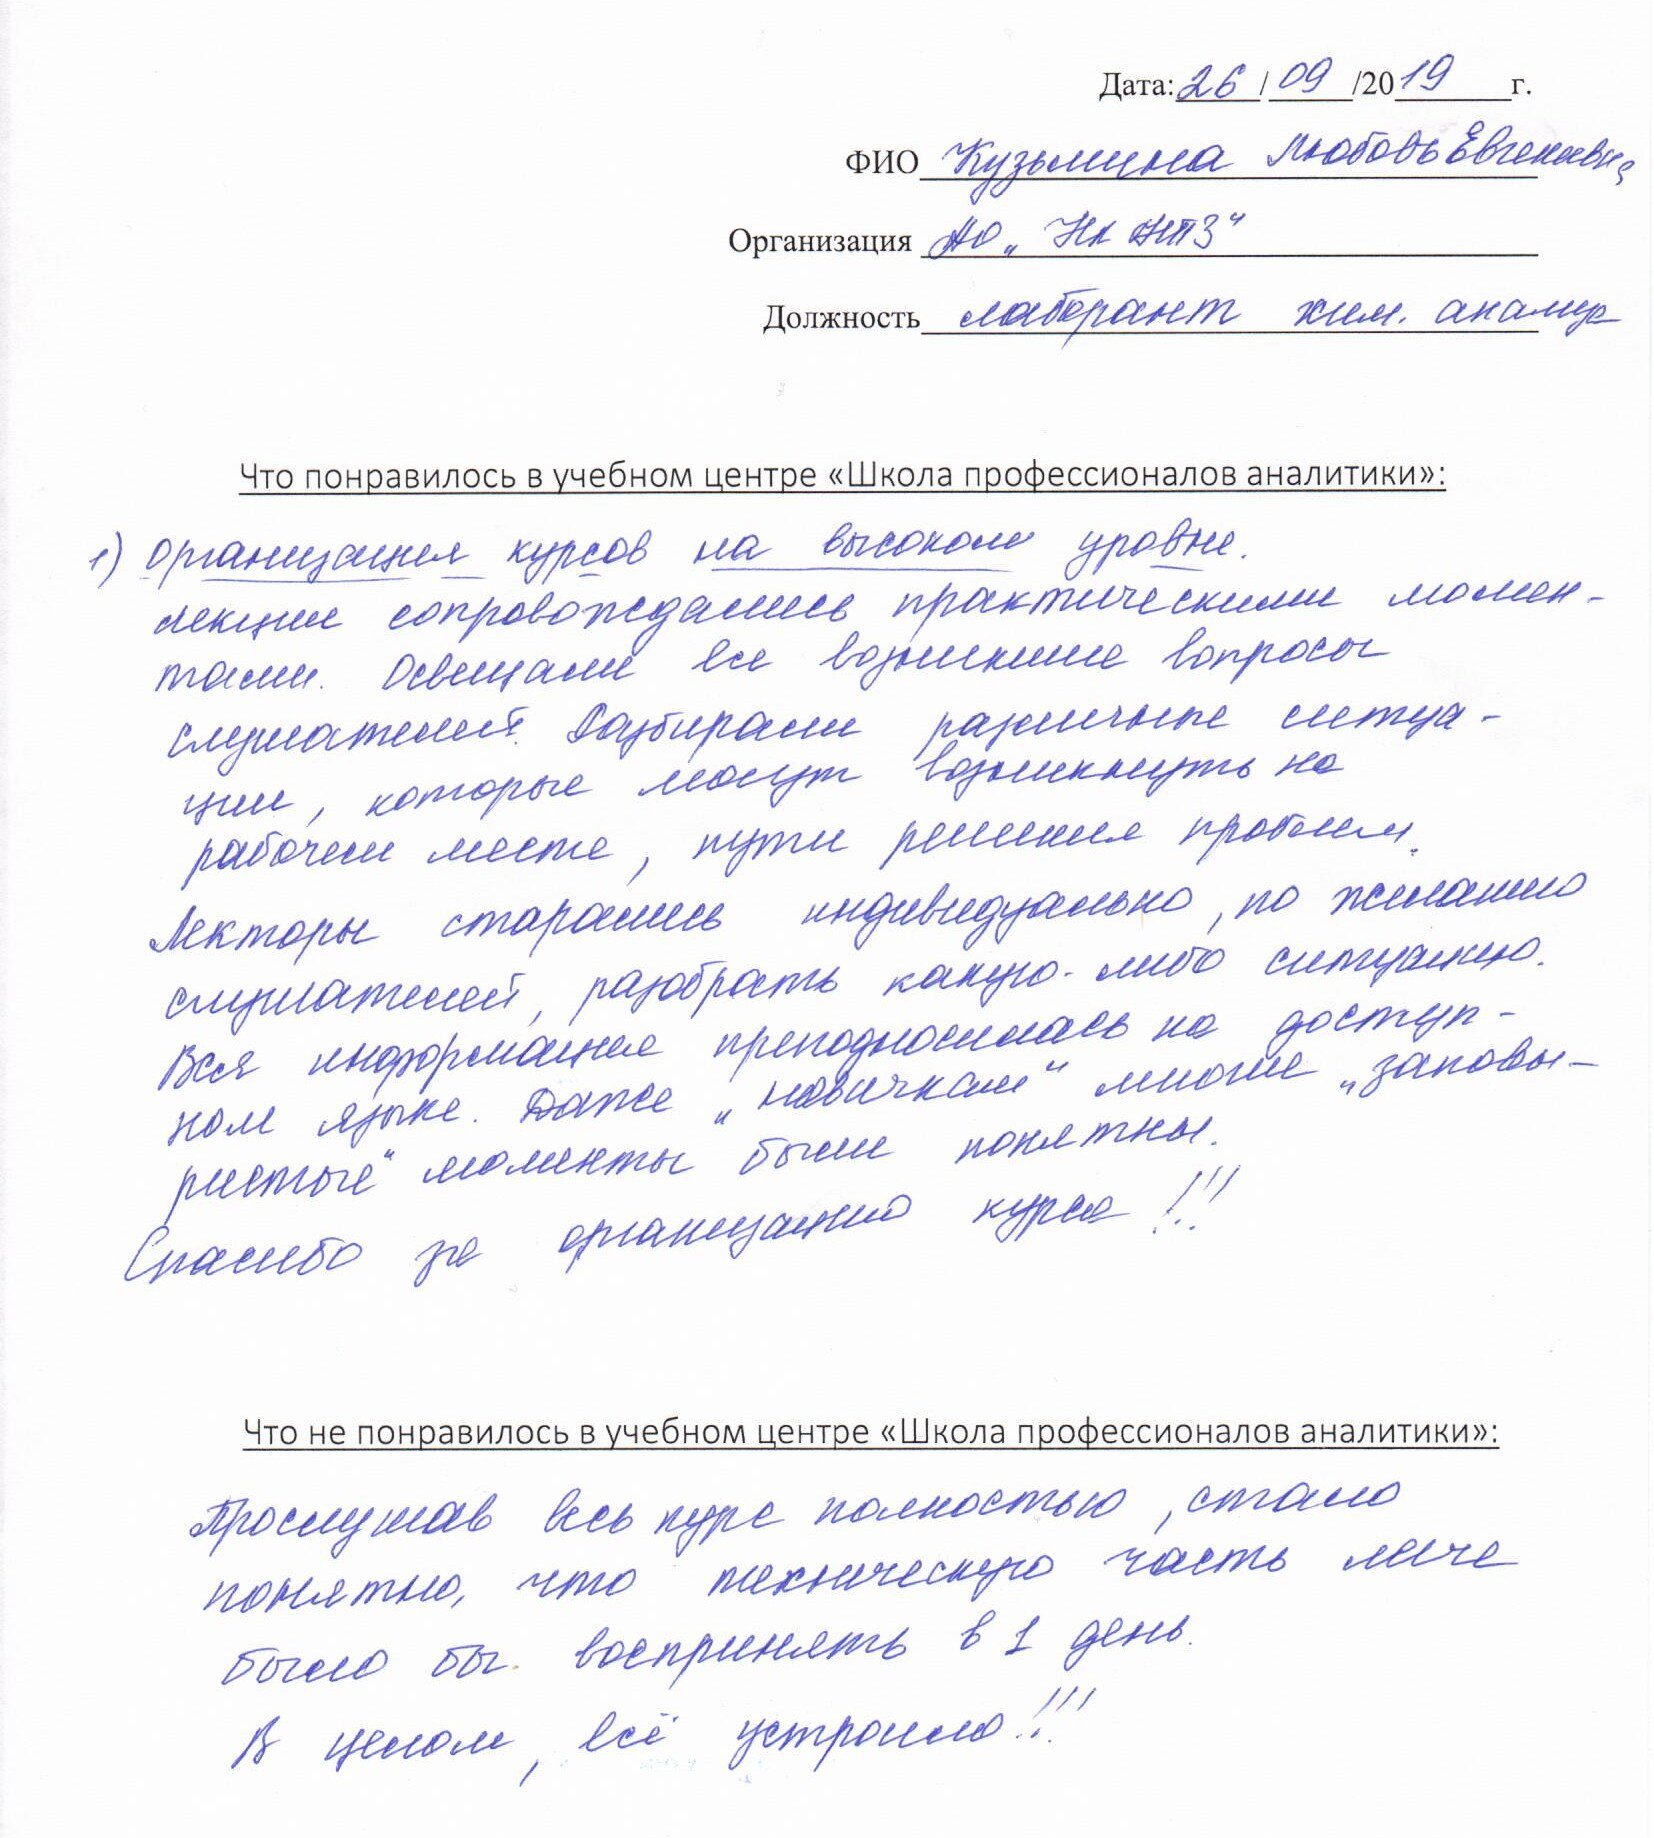 Дата: 26/09/2019 г.
ФИО Кузьмина Любовь Евгеньевна
Организация АО „Нк НПЗ“
Должность лаборант хим. анализа
Что понравилось в учебном центре «Школа профессионалов аналитики»:
1) Организация курсов на высоком уровне.
Лекции сопровождались практическими момен-
тами. Освещали все возникшие вопросы
слушателей. Разбирали различные ситуа-
ции, которые могут возникнуть на
рабочем месте, пути решения проблем.
Лекторы старались индивидуально, по желанию
слушателей, разобрать какую-либо ситуацию.
Вся информация преподносилась на доступ-
ном языке. Даже „новичкам“ многие „заковы-
ристые“ моменты были понятны.
Спасибо за организацию курса!!!
Что не понравилось в учебном центре «Школа профессионалов аналитики»:
Прослушав весь курс полностью, стало
понятно, что техническую часть легче
было бы воспринять в 1 день.
В целом, всё устроило!!!